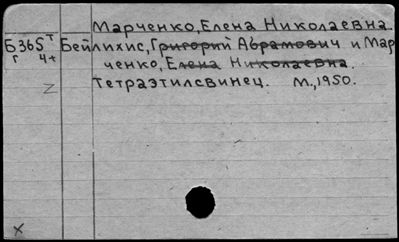 Марченко, Елена Николаевна.
Б365т Бейлихис, Григорий Абрамович и Мар
г 4+ ченко, Елена Николаевна.
Z Тетраэтилсвинец. М., 1950.
x